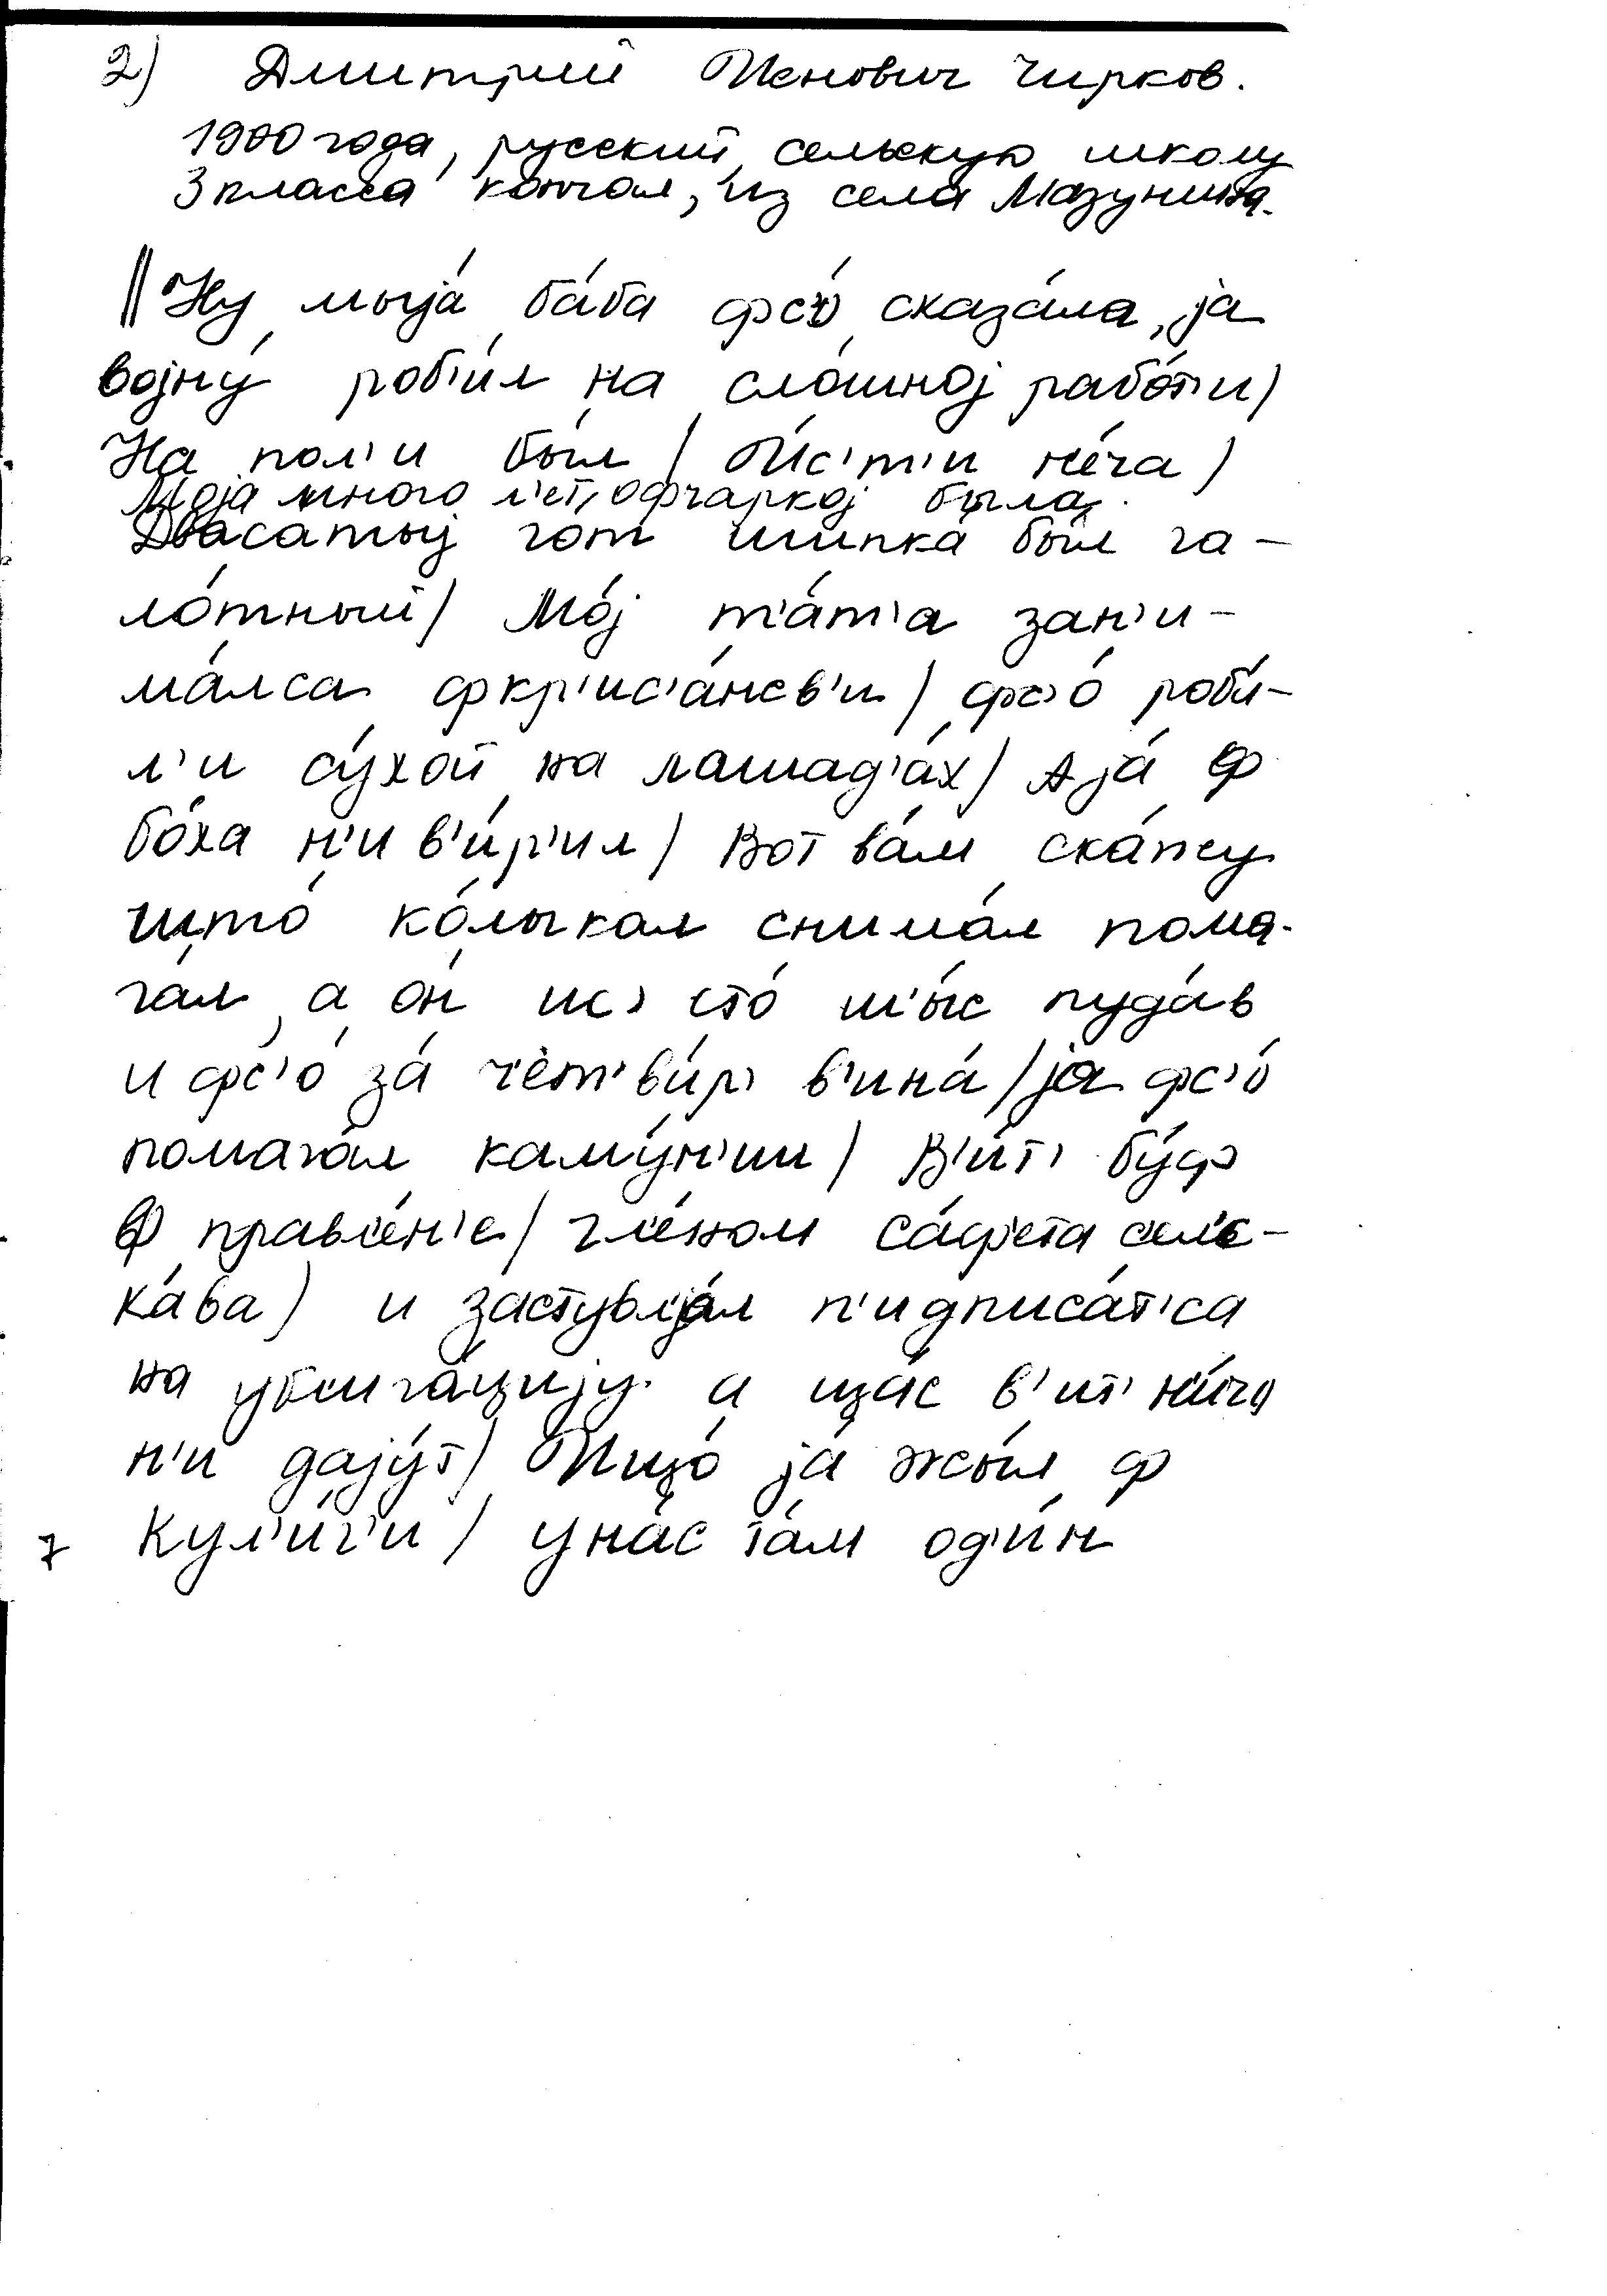 2) Дмитрий Иенович Чирков.
1900 года, русский, сельскую школу
3 класса кончал, из села Мазунина.
|| Ну мыjа́ ба́ба фс'о́ сказа́ла, jа
воjну́ роб'и́л на сло́шноj рабо́т'и /
На пол'и бы́л / И́с'т'и не́ча /
Моjа много л'ет, офчаркоj была.
Двасатыj гот шипка́ бы́л га-
ло́тный / Мо́j т'а́т'а зан'и-
ма́лса фкр'ис'а́нсв'и / фс'о́ роби́-
л'и су́хой на лашад'а́х / А jа́ ф
бо́ха н'и в'и́р'ил / Вот ва́м ска́жу
што́ ко́лыкал снима́л пома-
га́л, а о́н ис' сто́ ты́с пуда́в
и фс'о́ за́ ч'е́т'в'и́р' в'ина́ / jа фс'о́
помага́л каму́н'ии / В'и́т' бу́ф
ф правл'е́н'е / чл'е́ном са́ф'ета сел'с-
ка́ва / и заступл'а́л п'идписа́т'са
на ублига́цуjу а ща́с в'ит' н'и́чо
н'и даjу́т / Ищо́ jа́ жы́л ф
Кул'и́г'и / у на́с та́м од'и́н
7